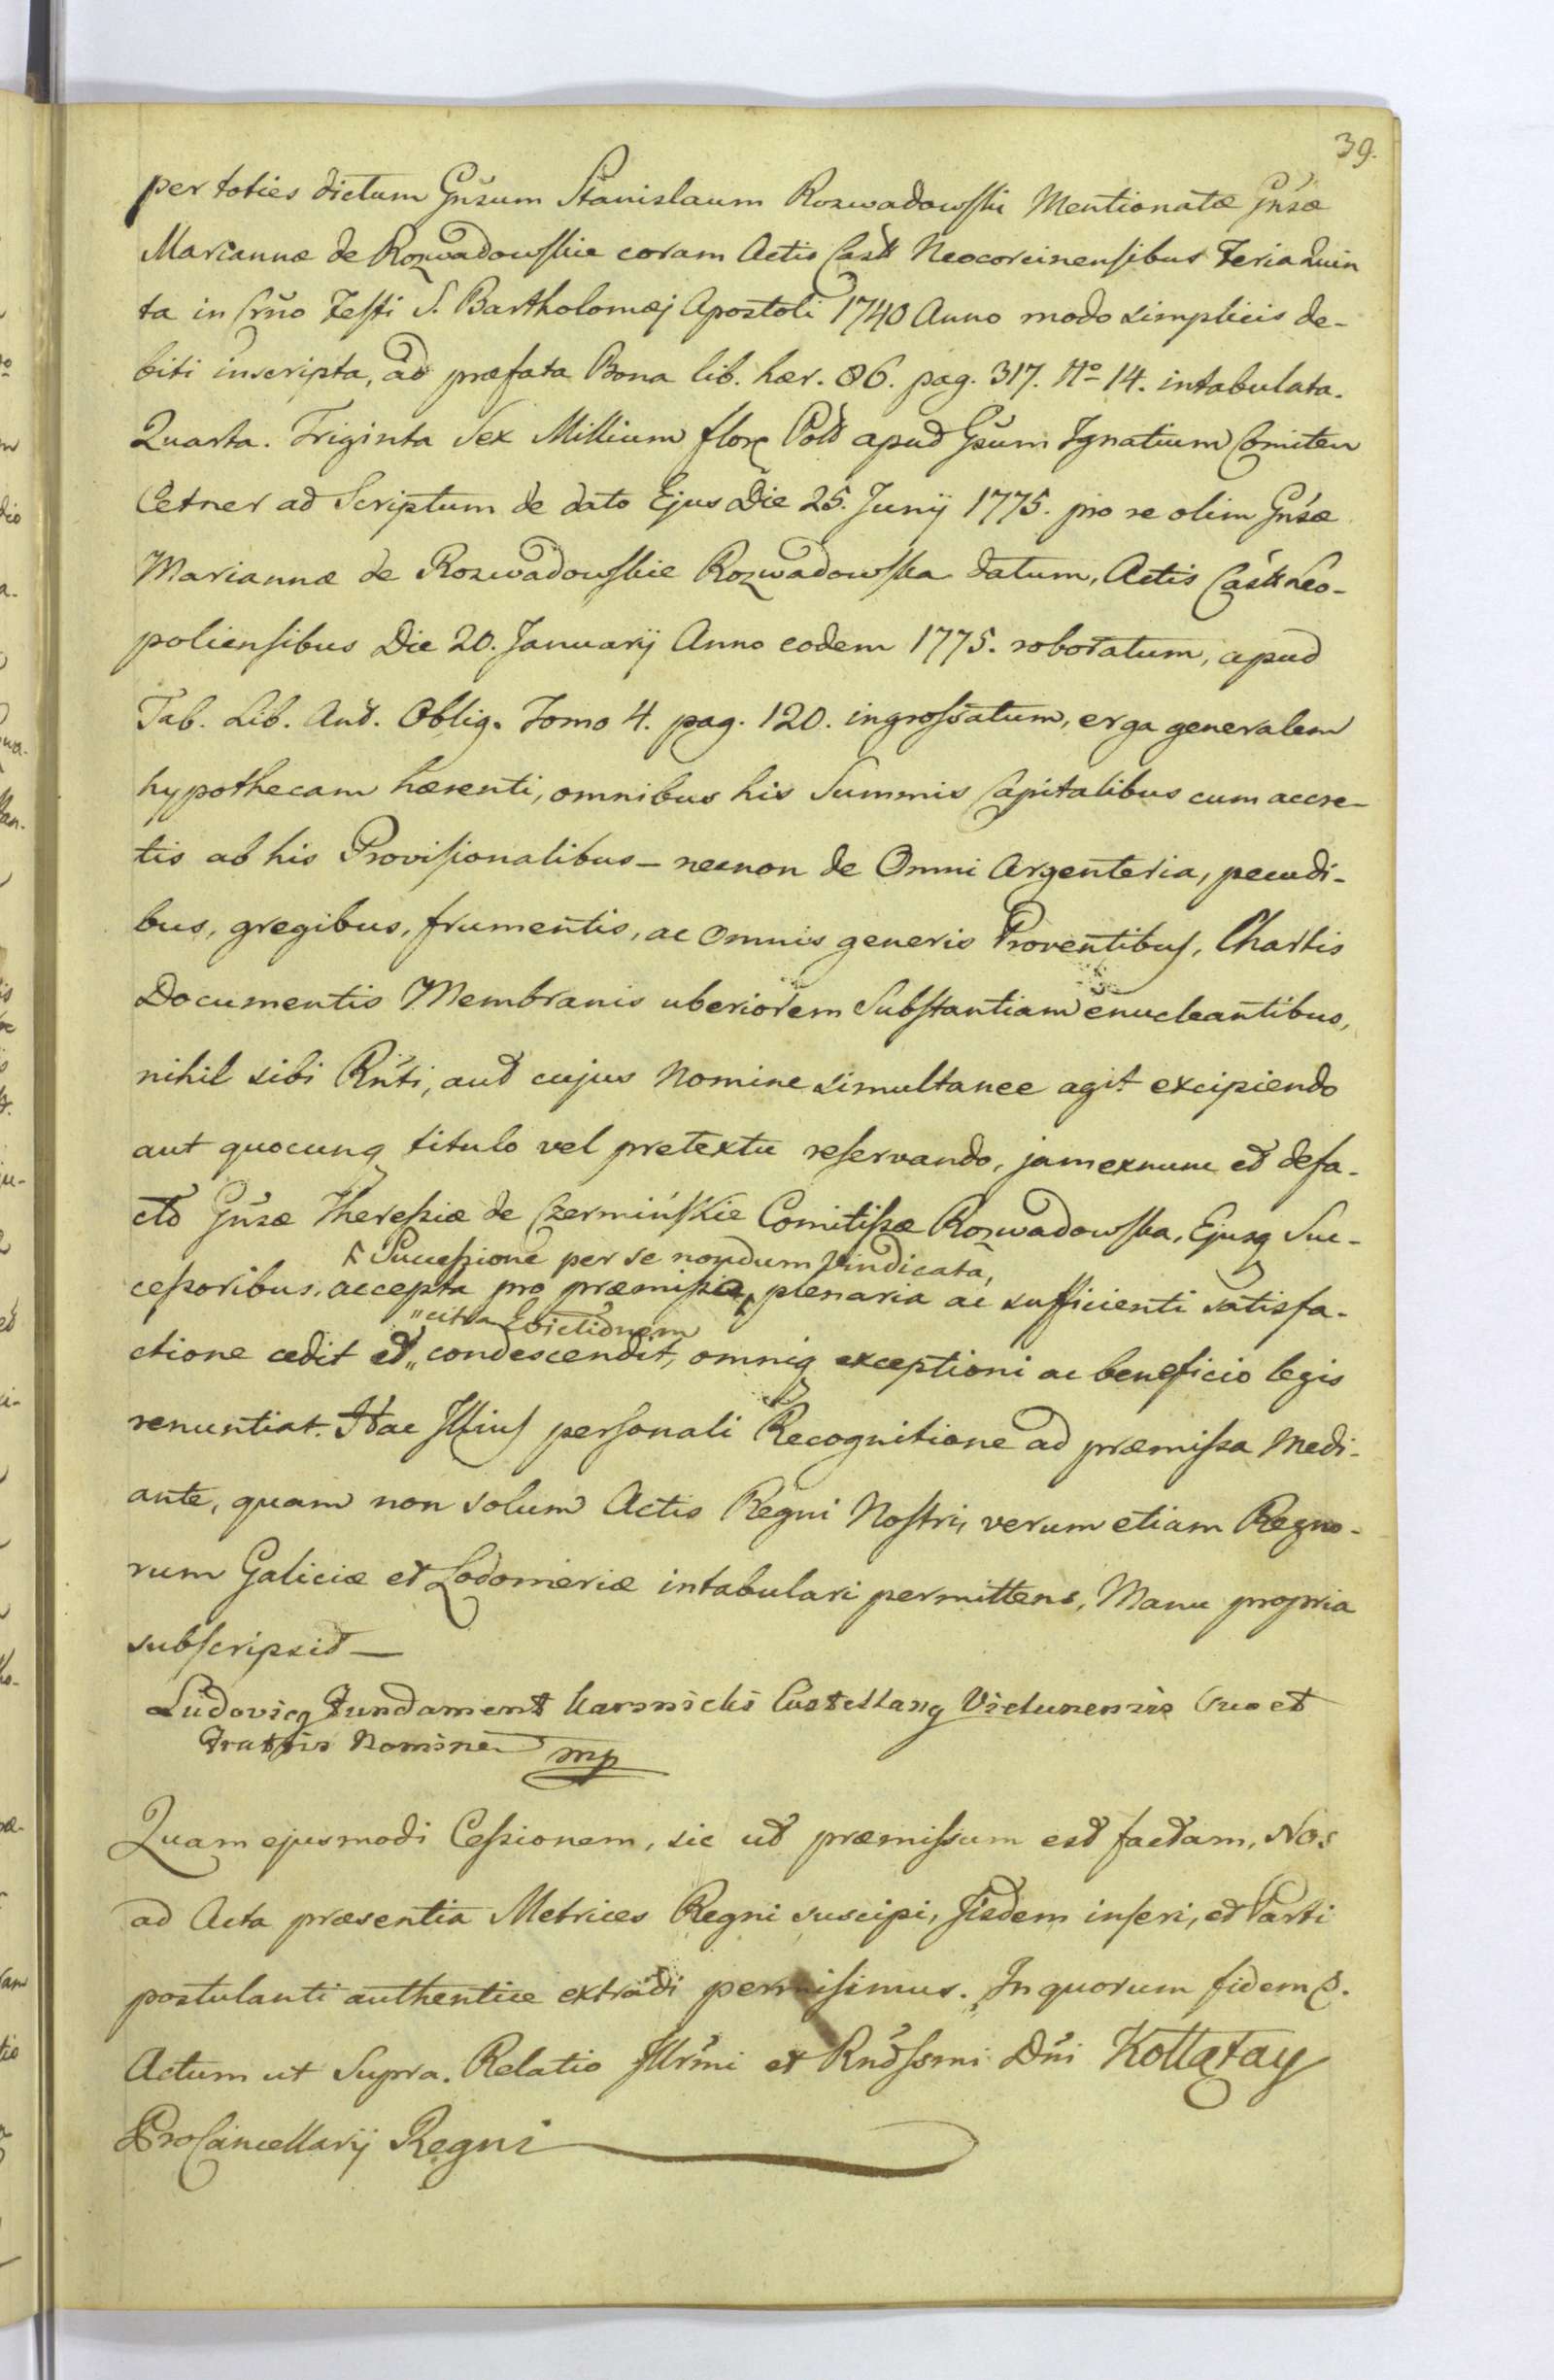 39.
per toties dictum Gnsum Stanislaum Rozwadowski Mentionatæ Gnsæ
Mariannæ de Rozwadowskie coram Actis Castr Neocorcinensibus Feria Quin
ta in Crño Festi S. Bartholomæj Apostoli 1740 Anno modo simplicis de-
biti inscripta, ad præfata Bona lib. hær. 86. pag. 317. No 14. intabulata.
Quarta. Triginta Sex Millium flor Pold apud Gsum Ignatium Comitem
Cetner ad Scriptum de dato Ejus Die 25. Junij 1775. pro re olim Gnsæ
Mariannæ de Rozwadowskie Rozwadowska datum, Actis Castr Leo-
poliensibus Die 20. Januarij Anno eodem 1775. roboratum, apud
Tab. Lib. Aud. Oblig. Tomo 4. pag. 120. ingrossatum, erga generalem
hypothecam hærenti, omnibus his Summis Capitalibus cum accre-
tis ab his Provisionalibus – necnon de Omni Argenteria, pecudi-
bus, gregibus, frumentis, ac omnis generis Proventibus, Chartis
Documentis Membranis uberiorem Substantiam enucleantibus,
nihil sibi Rñti, aut cujus Nomine simultanee agit excipiendo
aut quocunq titulo vel pretextu reservando, jamexnunc et defa-
cto Gnsæ Theressiæ de Czermińskie Comitissæ Rozwadowska, Ejusq Suc-
Successione per se nondum vindicata,
cessoribus, accepta pro præmissis, plenaria ac sufficienti satisfa-
"citra Evictionem
ctione cedit et "condescendit, omniq exceptioni ac beneficio legis
renuntiat. Hac Illius personali Recognitione ad præmissa Medi-
ante, quam non solum Actis Regni Nostri, verum etiam Regno-
rum Galiciæ et Lodomeriæ intabulari permittens, Manu propria
subscripsit —
Ludovicq Fundament Karsnicki Castellanq Vielunensis Suo et
Fratris Nomine mp
Quam ejusmodi Cessionem, sic ut præmissum est factam, Nos
ad Acta præsentia Metrices Regni suscipi, Iisdem inseri, et Parti
postulanti authentice extradi permisimus. In quorum fidem &.
Actum ut Supra. Relatio Illrmi et Rndssmi Dñi Kołłątay
ProCancellarij Regni